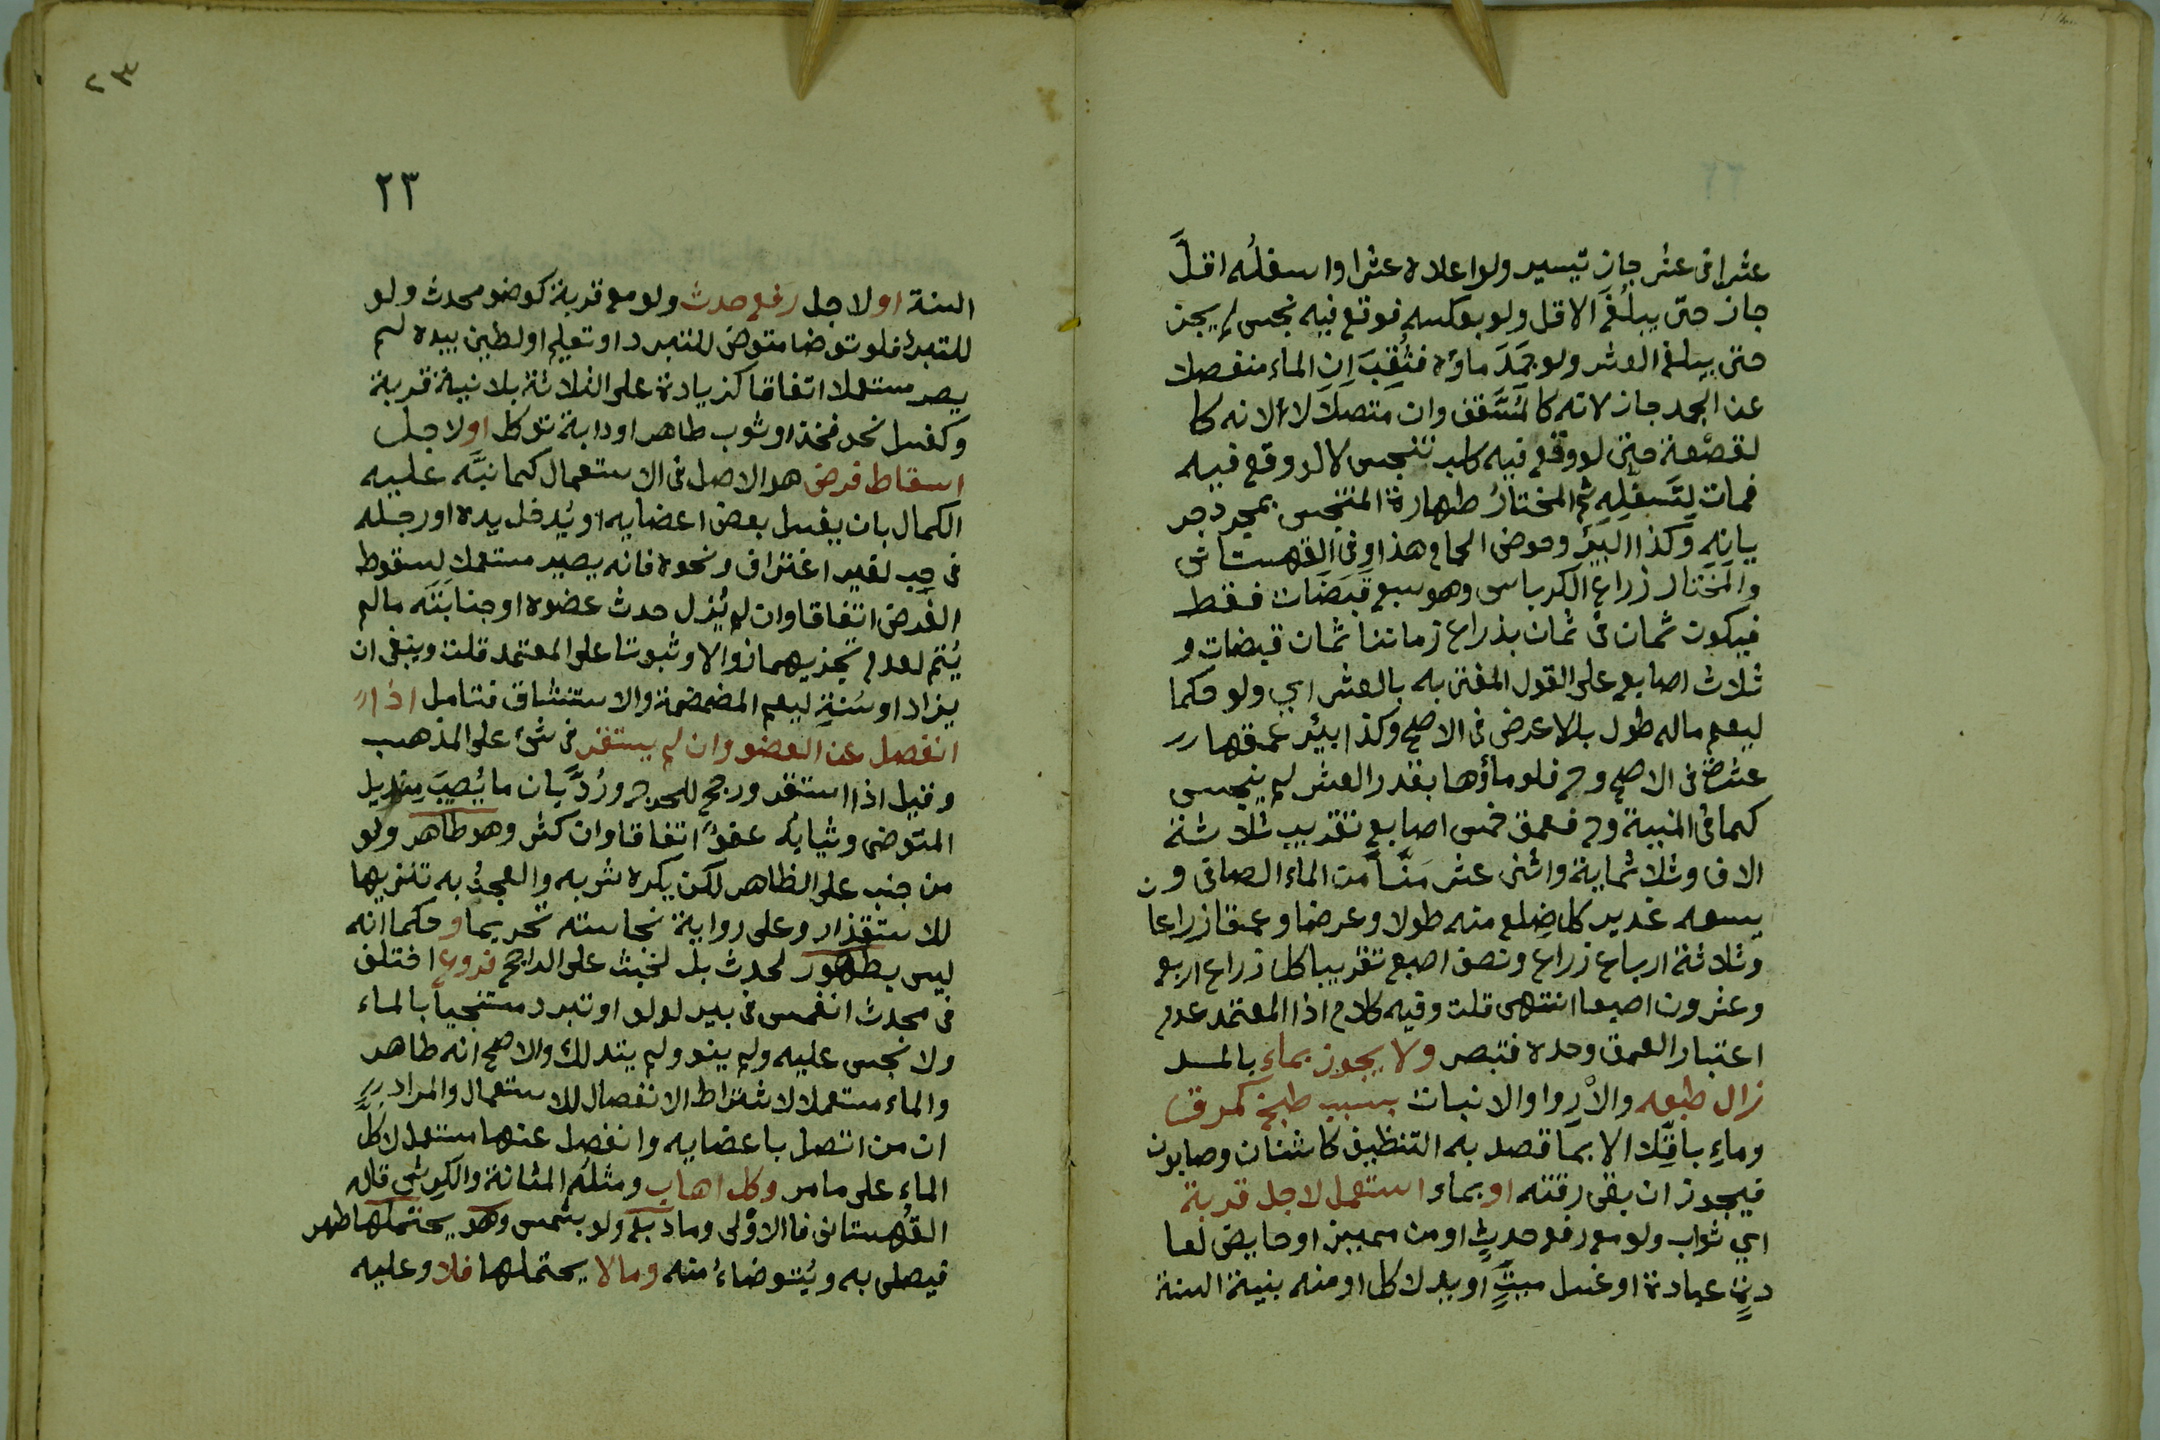 عشرا فى عشر جاز تيسير ولو اعلاه عشرا واسفلُه اقلَّ
جاز حتى يبلُغَ الاقل ولو بعكسه فوقع فيه نجس لم يجز
حتى يبلغ العشر ولو جَمَدَ ماؤه فثُقِبَ اِنِ الماء منفصلا
عن الجمد جاز لانه كالمُسَّقف وان متصلا لا لانه كا
لقصْعة حتى لو وقع فيه كلب تنجس لا لو وقع فيه
فمات لِتَسفلِهِ ثم المختارُ طهارة المتنجس بمجرد جر
يانِهِ وكذا البئر وحوض الحمام هذا وفى القهستانى
والمختار ذراع الكرباس وهو سبع قَبَضَات فقط
فيكون ثمان فى ثمان بذراع زماننا ثمان قبضات و
ثلاث اصابع على القول المفتى به بالعشر اي ولو حكما
ليعم ماله طول بلا عرض فى الاصح وكذا بئر عمقها
عشرة فى الاصح وح فلو ماؤها بقدر العشر لم ينجس
كما فى المنية وح فعمق خمس اصابع تقريب ثلاثة
الاف وثلاثماية واثنى عشر مَنّاً من الماء الصافى و
يسعه غدير كل ضِلع منه طولا وعرضا وعمقا ذراعا
وثلاثة ارباع ذراع ونصف اصبع تقريبا كل ذراع اربع
وعشرون اصبعا انتهى قلت وفيه كلام اذا المعتمد عدم
اعتبار العمق وحده فتبصر ولا يجوز بماءِ بالمد
زال طبعه والاْرِواوالانبات بسبب طبخ كمرق
وماءِ باقِلّا الا بما قصد به التنظيف كاشنان وصابون
فيجوز ان بقى رقته او بماء استعمل لاجل قربة
اي ثواب ولو مع رفع حدثٍ او من مميز او حايض لعا
دةِ عبادة او غسل ميتٍ او يد لاكل او منه بنية السنة
٢٣
٢٣
السنة او لاجل رفع حدث ولو مع قربة كوضو محدث ولو
للتبرد فلو توضا متوضٍ لتبرد او تعليم او لطين بيده لم
يصر مستعملا اتفاقا كزيادة على الثلاثة بلا نية قربة
وكغسل نحو فخذ او ثوب طاهر او دابة توكل او لاجل
اسقاط فرض هو الاصل فى الاستعمال كما نبَّه عليه
الكمال بان يغسل بعض اعضايه او يُدخل يده او رجله
فى حِب لغير اغتراف ونحوه فانه يصير مستعملا لسقوط
الفَرض اتفاقا وان لم يُزل حدث عضوه او جنابَتَه مالم
يُتم لعدم تجزيهما زوالا وثبوتا على المعتمد قلت وينبغى ان
يزاد او سُنةٍ ليعم المضمضة والاستنشاق فتامل اذا
انفصل عن العضو وان لم يستقر فى شئ على المذهب
وقيل اذا استقر ورجح للحرج ورُدَّ بان ما يُصيب مِنديل
المتوضى وثيابُه عفوٌ اتفاقا وان كثر وهو طاهر ولو
من جنب على الظاهر لكن يكره شربه والعجنُ به تنزيها
للاستقذار وعلى رواية نجاسته تحريما وحكما انه
ليس بطَهُور لحدث بل لخبث على الراجح فروع اختلف
فى محدث انغمس فى بير لدلو او تبرد مستنجيا بالماء
ولا نجس عليه ولم ينو ولم يتدلك والاصح انه طاهر
والماء مستعمل لاشتراط الانفصال للاستعمال والمراد
ان من اتصل باعضايه وانفصل عنها مستعمل لاكلَّ
الماء على مامر وكل اهاب ومثله المثانة والكرش قال
القُهستانى فا الاوْلى وما دبغ ولو بشمس وهو يحتملها طهر
فيصلى به ويُتوضاءُ منه ومالا يحتملها فلا وعليه